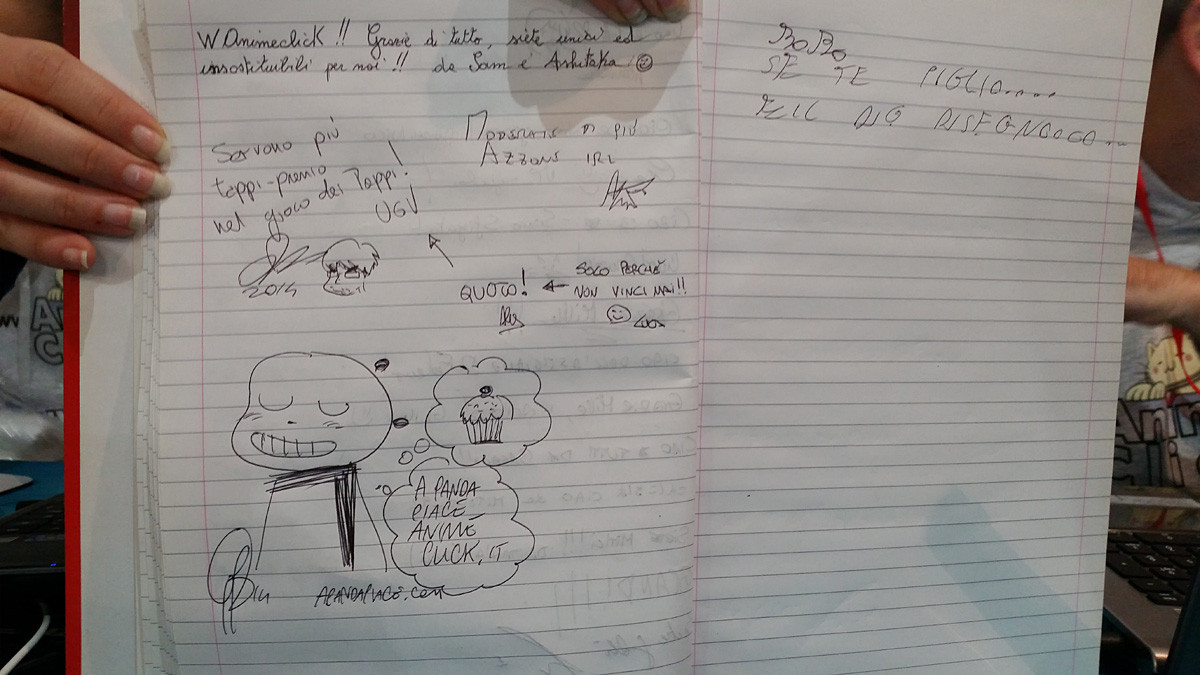 W Animeclick!! Grazie di tutto, siete unici ed
insostituibili per noi!! da Sam e Ashitaka
Servono più
tappi-premio
nel gioco dei Tappi!
UGV
2014
di più
IRL
QUOTO!
SOLO PERCHÈ
NON VINCI MAI!!
A PANDA
PIACE
ANIME
CLICK.IT
APANDAPIACE.COM
BOBO
SE TE PIGLIO....